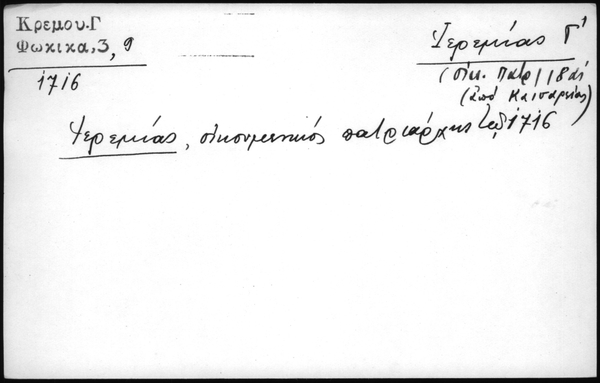 Κρεμου.Γ
Φωκικα,3,9
1716
Ἱερεμίας Γ'
(οἰκ. Πατρ) 18 αἰ
(ἀπό Καισαρείας)
Ἱερεμίας, οἰκουμενικός πατριάρχης τῷ 1716